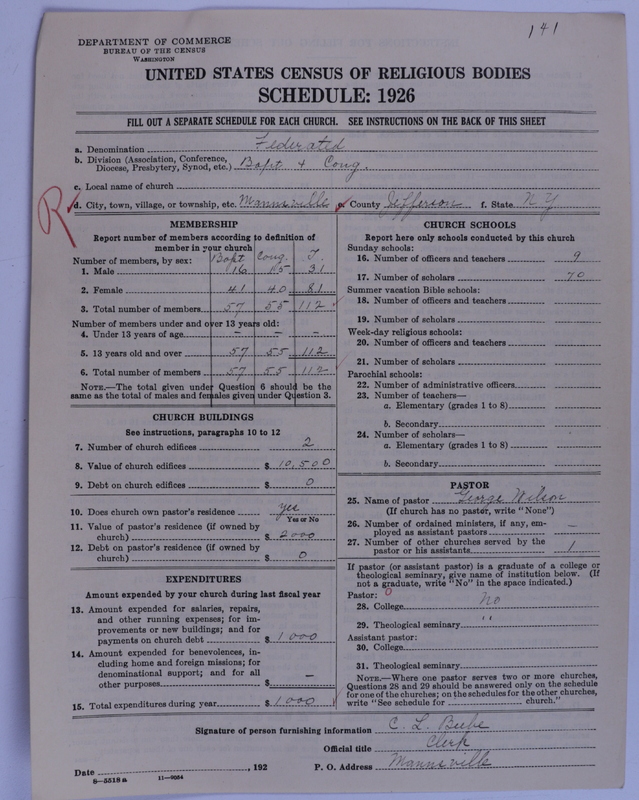 141
DEPARTMENT OF COMMERCE
BUREAU OF THE CENSUS
WASHINGTON
UNITED STATES CENSUS OF RELIGIOUS BODIES
SCHEDULE: 1926
FILL OUT A SEPARATE SCHEDULE FOR EACH CHURCH. SEE INSTRUCTIONS ON THE BACK OF THIS SHEET
a. Denomination Federated
b. Division (Association, Conference, Diocese, Presbytery, Synod, etc.) Bapt & Cong.
c. Local name of church
R d. City, town, village, or township, etc. Mannsville e. County Jefferson f. State N Y
MEMBERSHIP
Report number of members according to definition of
member in your church
Number of members, by sex: Bapt Cong. T
1. Male 16 15 31
2. Female 41 40 81
3. Total number of members 57 55 112
Number of members under and over 13 years old:
4. Under 13 years of age - - -
5. 13 years old and over 57 55 112
6. Total number of members 57 55 112
NOTE.—The total given under Question 6 should be the
same as the total of males and females given under Question 3.
CHURCH BUILDINGS
See instructions, paragraphs 10 to 12
7. Number of church edifices 2
8. Value of church edifices $ 10,500
9. Debt on church edifices $ 0
10. Does church own pastor's residence yes
Yes or No
11. Value of pastor's residence (if owned by
church) $ 2000
12. Debt on pastor's residence (if owned by
church) $ 0
EXPENDITURES
Amount expended by your church during last fiscal year
13. Amount expended for salaries, repairs,
and other running expenses; for im-
provements or new buildings; and for
payments on church debt $ 1000
14. Amount expended for benevolences, in-
cluding home and foreign missions; for
denominational support; and for all
other purposes $ —
15. Total expenditures during year $ 1000
CHURCH SCHOOLS
Report here only schools conducted by this church
Sunday schools:
16. Number of officers and teachers 9
17. Number of scholars 70
Summer vacation Bible schools:
18. Number of officers and teachers
19. Number of scholars
Week-day religious schools:
20. Number of officers and teachers
21. Number of scholars
Parochial schools:
22. Number of administrative officers
23. Number of teachers—
a. Elementary (grades 1 to 8)
b. Secondary
24. Number of scholars—
a. Elementary (grades 1 to 8)
b. Secondary
PASTOR
25. Name of pastor George Wilson
(If church has no pastor, write "None")
26. Number of ordained ministers, if any, em-
ployed as assistant pastors —
27. Number of other churches served by the
pastor or his assistants 1
If pastor (or assistant pastor) is a graduate of a college or
theological seminary, give name of institution below. (If
not a graduate, write "No" in the space indicated.)
Pastor: 0
28. College No
29. Theological seminary "
Assistant pastor:
30. College
31. Theological seminary
NOTE.—Where one pastor serves two or more churches,
Questions 28 and 29 should be answered only on the schedule
for one of the churches; on the schedules for the other churches,
write "See schedule for church."
Signature of person furnishing information C. L. Beebe
Official title Clerk
Date , 192 P. O. Address Mannsville
8—5518 a 11—9034